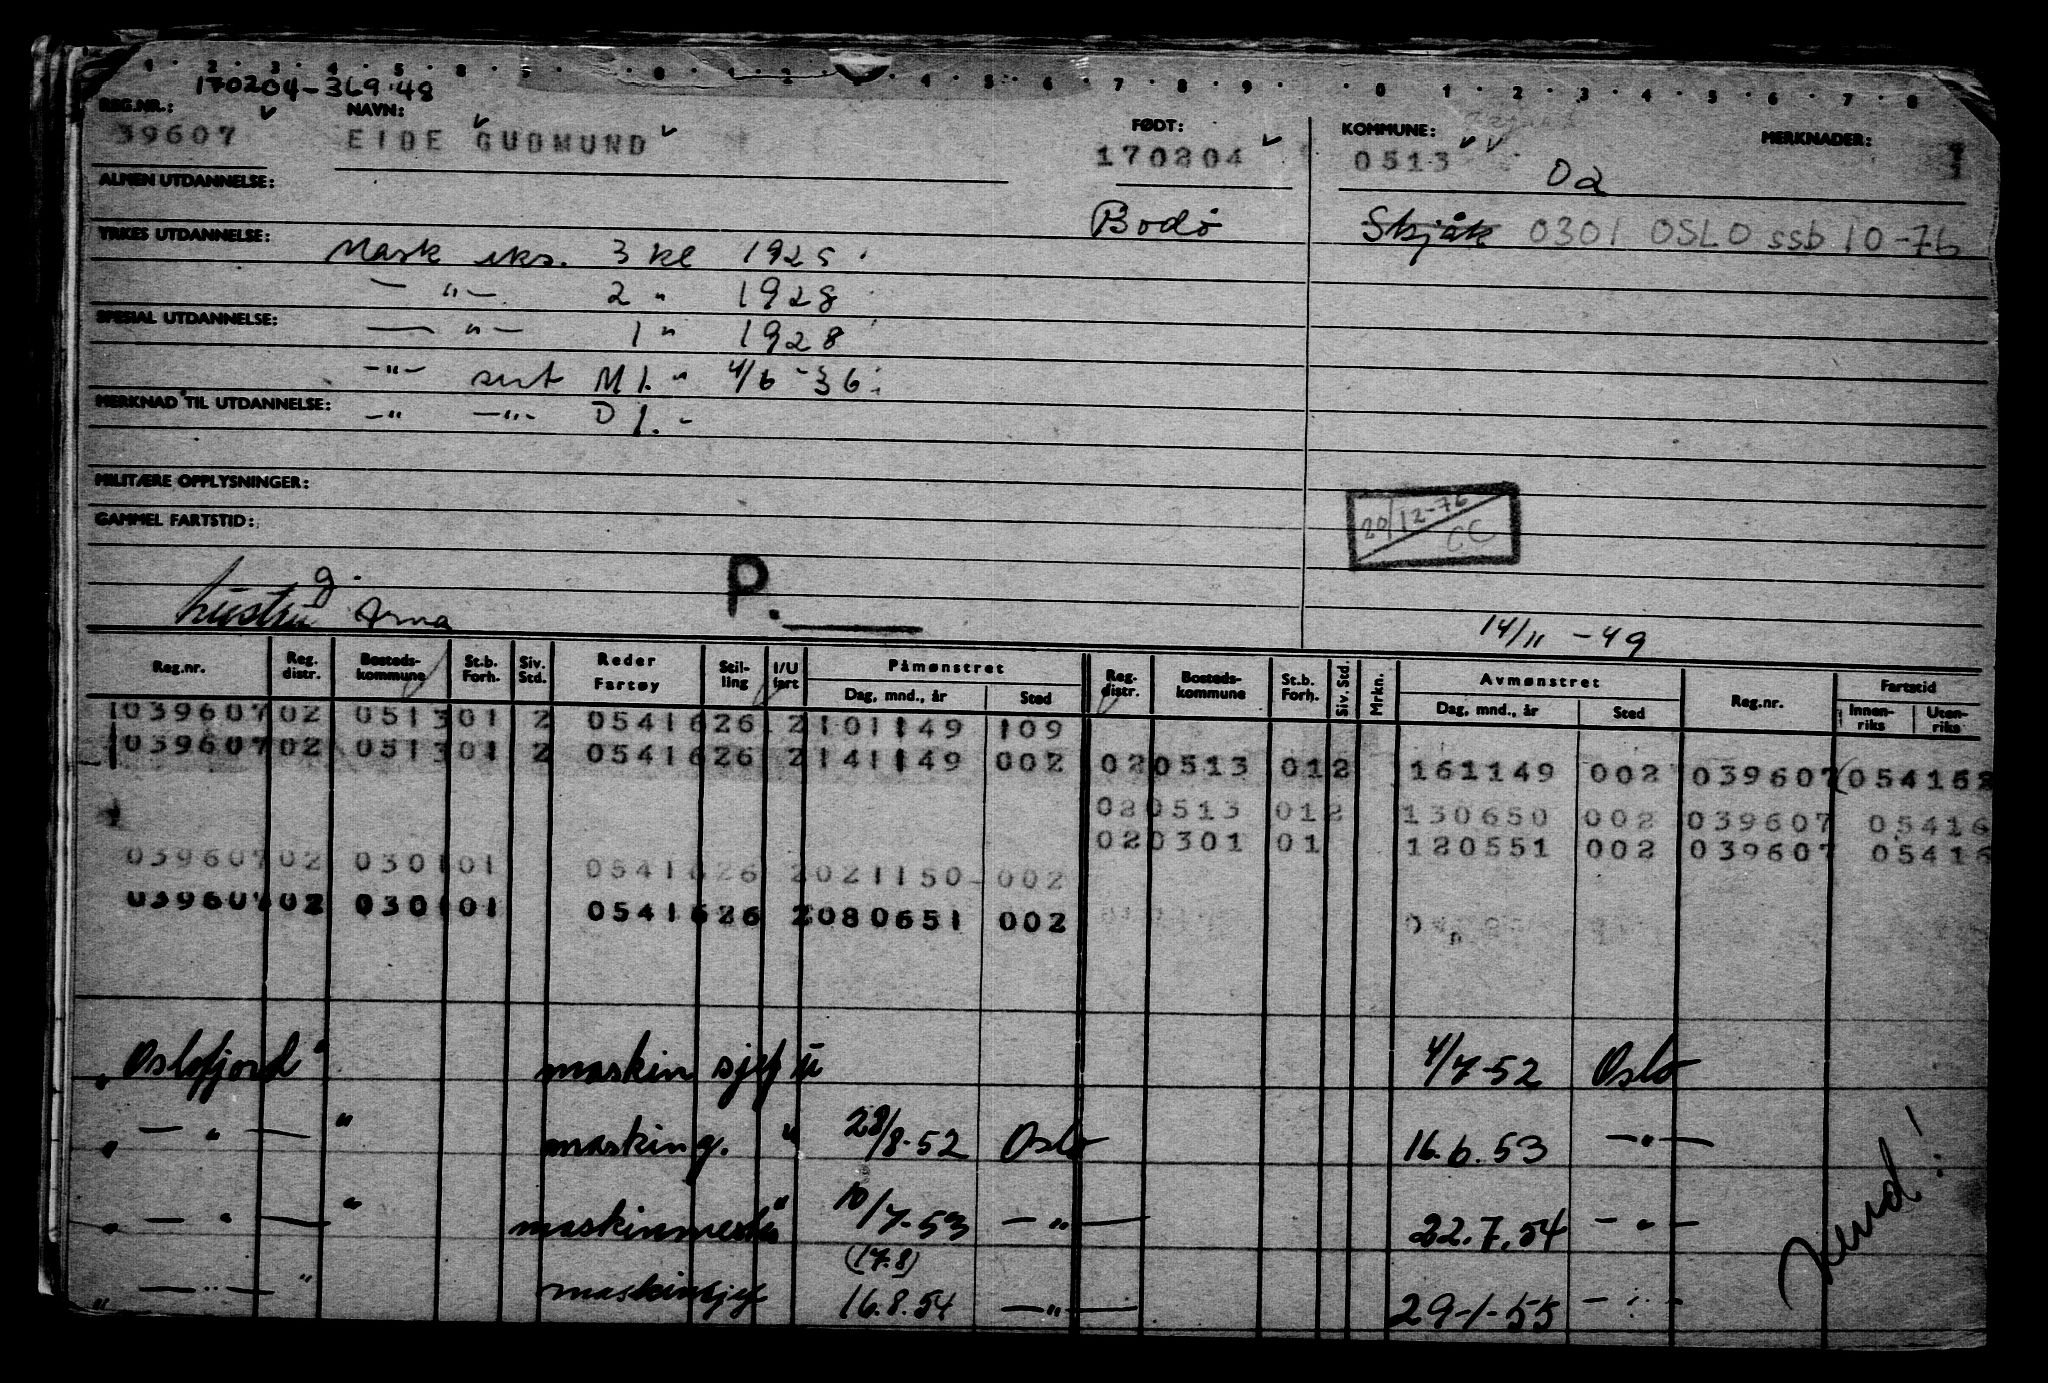 1 · 2 · 3 · 4 · 5 · 6 · 7 · 8 · 9 · 0 · 1 · 2 · 3 · 4 · 5 · 6 · 7 · 8
170204-369.48
REG.NR.: NAVN: FØDT: KOMMUNE: MERKNADER:
39607 EIDE GUDMUND 170204 0513
Oa
ALMEN UTDANNELSE:
Bodø Skjåk 0301 OSLO ssb 10-76
YRKES UTDANNELSE:
Mask eks. 3 kl 1925
— " — 2 " 1928
SPESIAL UTDANNELSE:
— " — 1 " 1928
— " — sert M 1. " 4/6-36
MERKNAD TIL UTDANNELSE:
— " — " — D 1. -
MILITÆRE OPPLYSNINGER:
GAMMEL FARTSTID:
20/12-76
CC
P.
g. hustru Arna
14/11 - 49
Reg.nr. Reg. distr. Bosteds-kommune St.b. Forh. Siv. Std. Reder Fartøy Stil-ling I/U fart Påmønstret Dag, mnd., år Sted Reg. distr. Bosteds-kommune St.b. Forh. Siv. Std. Mrkn. Avmønstret Dag, mnd., år Sted Reg.nr. Fartstid Innen-riks Uten-riks
1039607 02 0513 01 2 0541626 2 101149 109
1039607 02 0513 01 2 0541626 2 141149 002 02 0513 01 2 161149 002 039607 054162
02 0513 01 2 130650 002 039607 05416
02 0301 01 120551 002 039607 05416
039607 02 0301 01 0541626 2 021150 002
039607 02 0301 01 0541626 2 080651 002
"Oslofjord" maskinsjef u 4/7-52 Oslo
" — " — " masking. " 28/8-52 Oslo 16.6.53 — " —
" — " — " maskinmester " 10/7-53 — " — 22.7.54 — " —
(17.8)
" — " — " maskinsjef 16.8.54 — " — 29-1-55 — " —
Send!